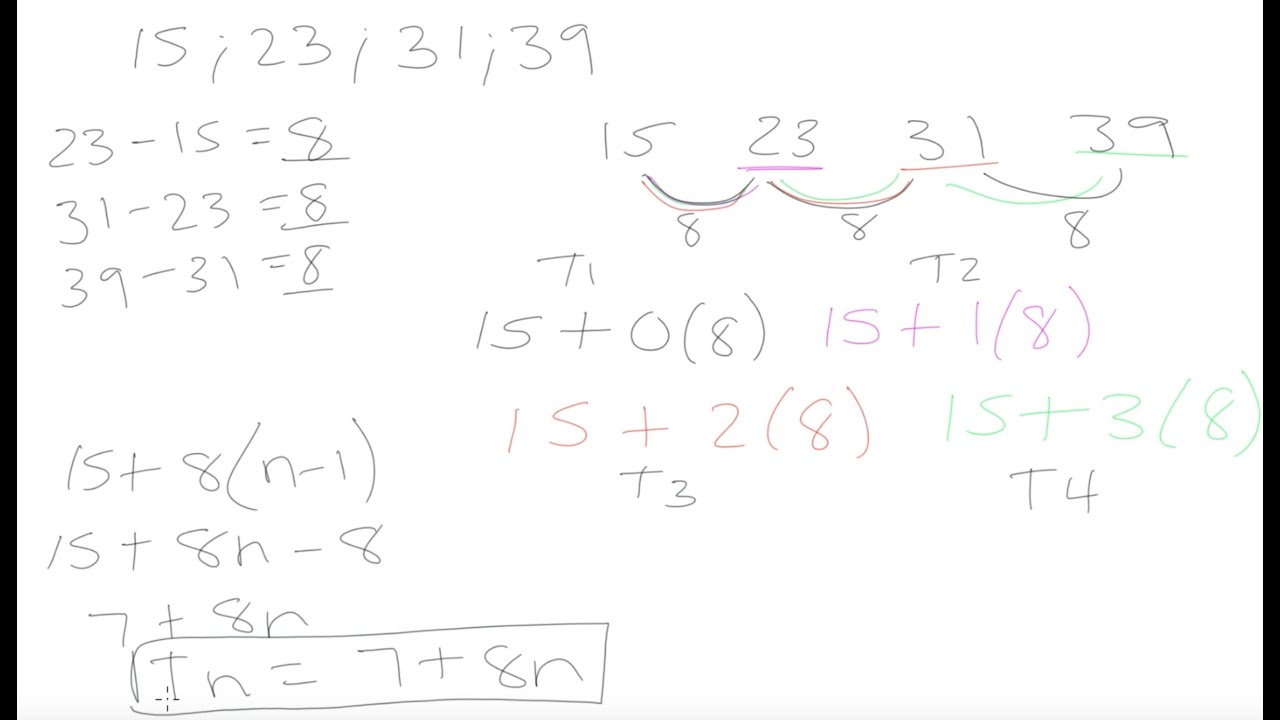 15 ; 23 ; 31 ; 39
23 - 15 = 8
31 - 23 = 8
39 - 31 = 8
15 23 31 39
8 8 8
T1 T2
15 + 0(8) 15 + 1(8)
15 + 2(8) 15 + 3(8)
T3 T4
15 + 8(n-1)
15 + 8n - 8
7 + 8n
Tn = 7 + 8n